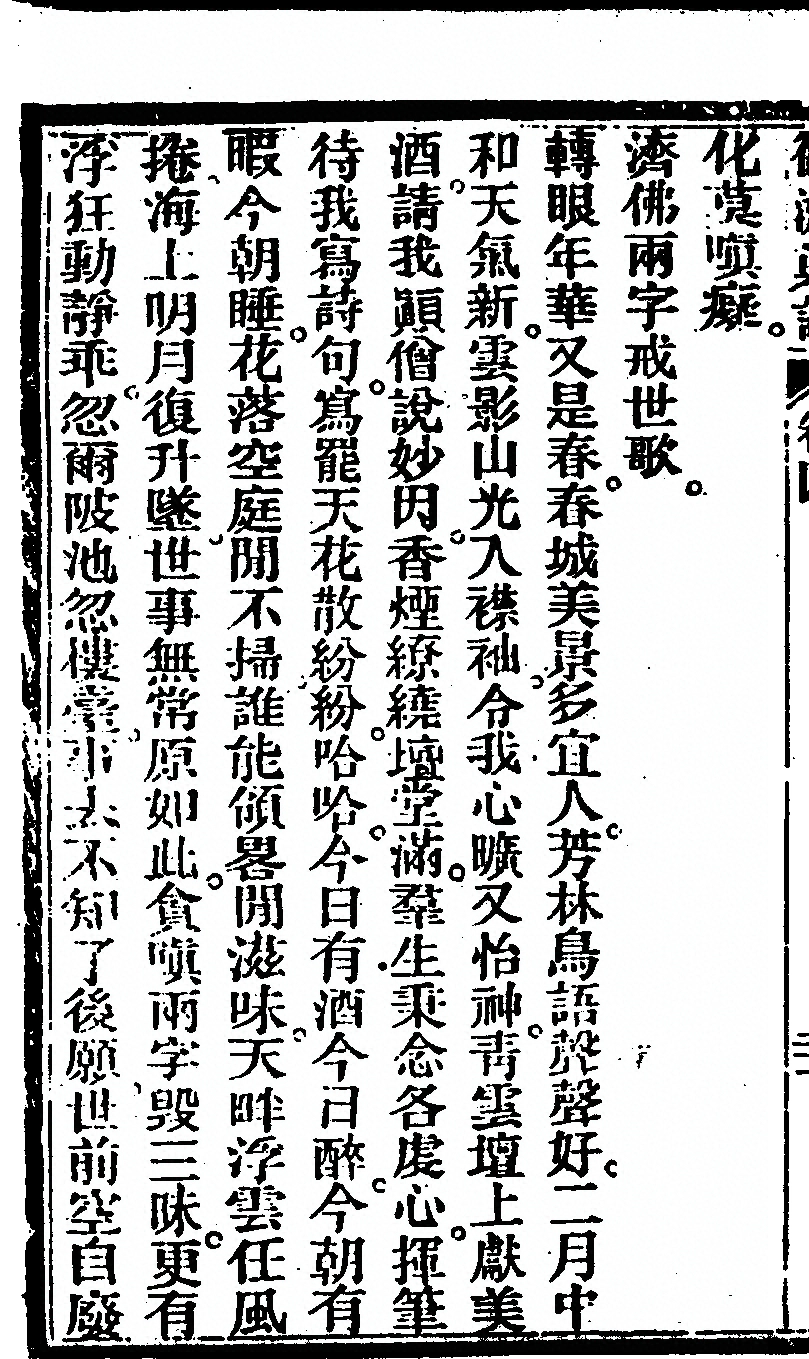 化莫嗔癡。
濟佛兩字戒世歌。
轉眼年華又是春。春城美景多宜人。芳林鳥語聲聲好。二月中
和天氣新。雲影山光入襟袖。令我心曠又怡神。青雲壇上獻美
酒。請我顚僧說妙因。香煙繚繞壇堂滿。羣生秉念各虔心。揮筆
待我寫詩句。寫罷天花散紛紛。哈哈。今日有酒今日醉。今朝有
暇今朝睡。花落空庭閒不掃。誰能領畧閒滋味。天畔浮雲任風
捲。海上明月復升墜。世事無常原如此。貪嗔兩字毀三昧。更有
浮狂動靜乖。忽爾陂池忽樓臺。事去不知了後願。世前空自廢